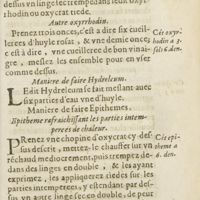 dessus vn linge les trempe dans leur oxyr-
rhodin ou oxycrat tiede.
Autre oxyrrhodin.
Prenez trois onces, c'est à dire six cueil-
lerees d'huyle rosat, & vne demie once,
c'est à dire, vne cueilleree de bon vinai-
gre, meslez les ensemble pour en vser
comme dessus.
Cét oxyr-
rhodin a
Maniere de faire Hydreleum.
LEdit Hydreleum se fait meslant auec
six parties d'eau vne d'huyle.
Maniere de faire Epithemes.
Epitheme rafraichissant les parties intem-
perees de chaleur.
PRenez vne chopine d'oxycrat cy des-
sus descrit, mettez-le chauffer sur vn
réchaud mediocrement, puis trempez de-
dans des linges en double, & les ayant
exprimez, les appliquerez tiedes sur les
parties intemperees, y estendant par des-
sus vn autre linge en double, & quand
Cét epi-
theme a
6. den.